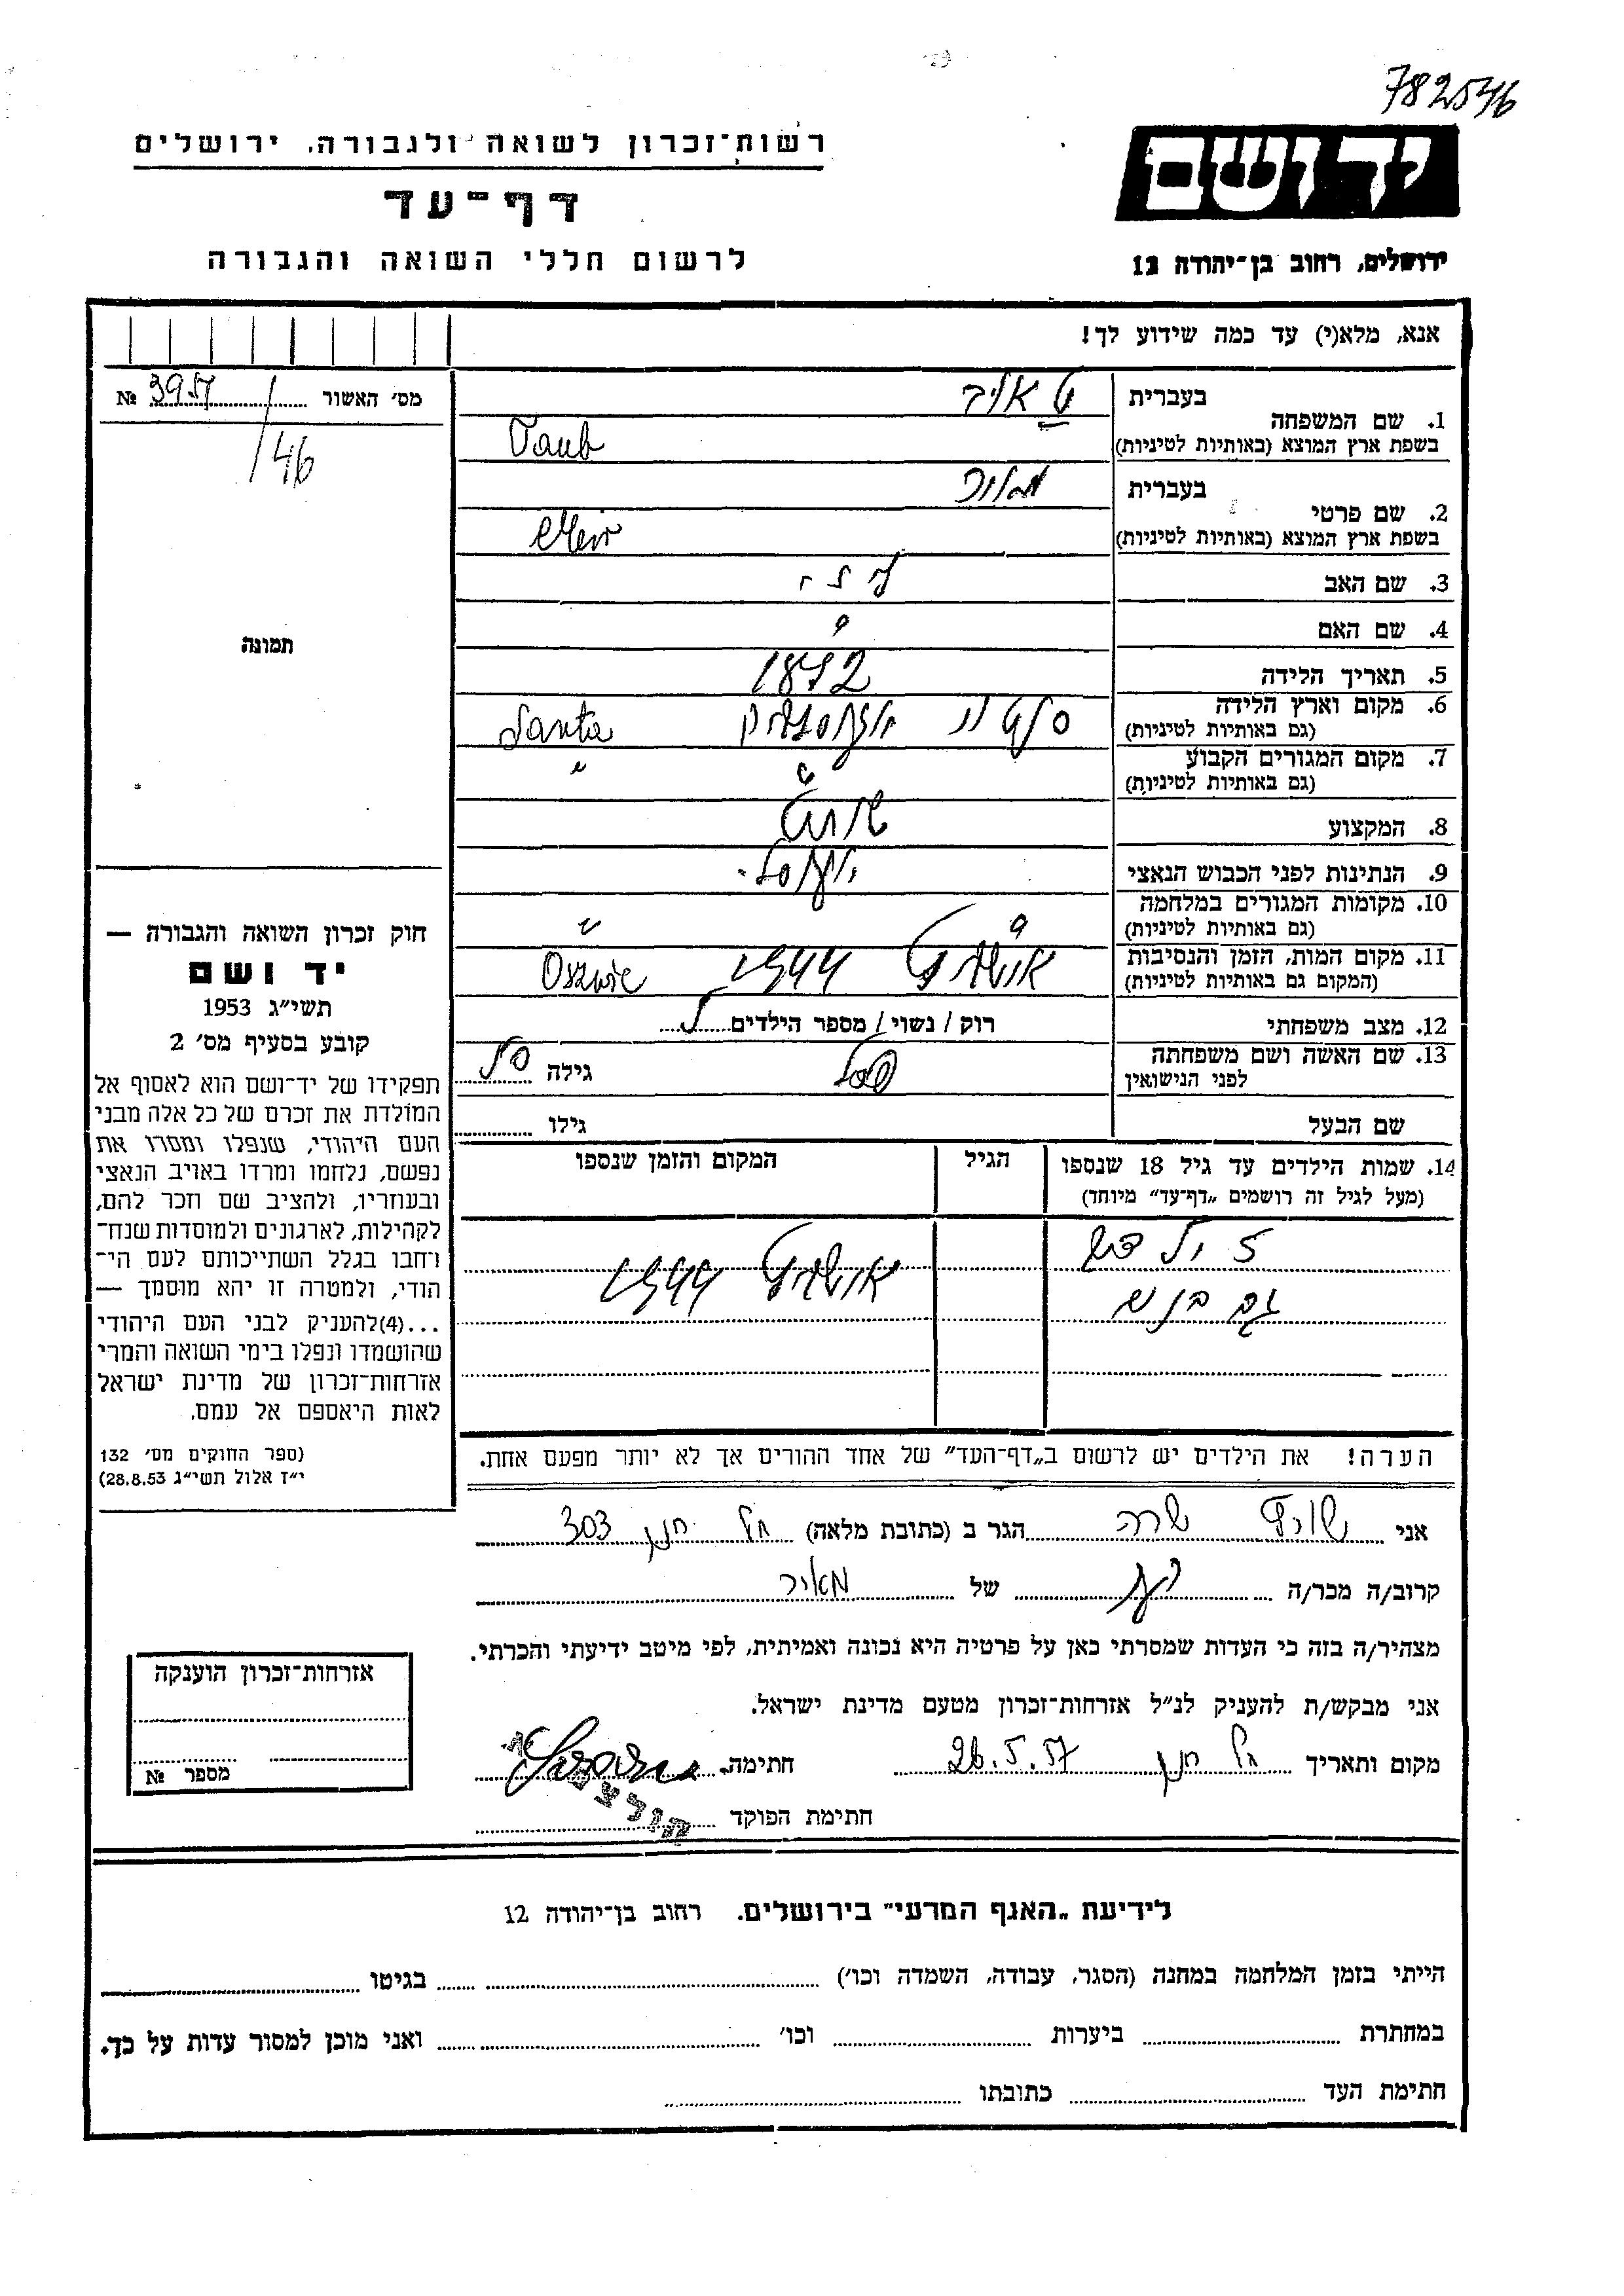 782546
רשות־זכרון לשואה ולגבורה, ירושלים
יד ושם
דף־עד
ירושלים, רחוב בן־יהודה 12
לרשום חללי השואה והגבורה
אנא, מלא(י) עד כמה שידוע לך!
מס׳ האשור № 3957
/46
תמונה
1. שם המשפחה
בעברית טאוב
בשפת ארץ המוצא (באותיות לטיניות) Taub
2. שם פרטי
בעברית מאיר
בשפת ארץ המוצא (באותיות לטיניות) Meir
3. שם האב
4. שם האם ?
5. תאריך הלידה 1872
6. מקום וארץ הלידה
(גם באותיות לטיניות) Santa
7. מקום המגורים הקבוע
(גם באותיות לטיניות) " "
8. המקצוע
9. הנתינות לפני הכבוש הנאצי
10. מקומות המגורים במלחמה
(גם באותיות לטיניות) "
11. מקום המות, הזמן והנסיבות
(המקום גם באותיות לטיניות) 1944
12. מצב משפחתי רוק / נשוי / מספר הילדים
13. שם האשה ושם משפחתה
לפני הנישואין גילה
שם הבעל גילו
14. שמות הילדים עד גיל 18 שנספו הגיל המקום והזמן שנספו
(מעל לגיל זה רושמים „דף־עד״ מיוחד)
1944
הערה! את הילדים יש לרשום ב„דף־העד״ של אחד ההורים אך לא יותר מפעם אחת.
חוק זכרון השואה והגבורה —
יד ושם
תשי״ג 1953
קובע בסעיף מס׳ 2
תפקידו של יד־ושם הוא לאסוף אל
המולדת את זכרם של כל אלה מבני
העם היהודי, שנפלו ומסרו את
נפשם, נלחמו ומרדו באויב הנאצי
ובעוזריו, ולהציב שם וזכר להם,
לקהילות, לארגונים ולמוסדות שנח־
רחבו בגלל השתייכותם לעם הי־
הודי, ולמטרה זו יהא מוסמך —
...(4)להעניק לבני העם היהודי
שהושמדו ונפלו בימי השואה והמרי
אזרחות־זכרון של מדינת ישראל
לאות היאספם אל עמם.
(ספר החוקים מס׳ 132
י״ז אלול תשי״ג 28.8.53)
אני שרה הגר ב (כתובת מלאה) תל חנן 303
קרוב/ה מכר/ה של מאיר
מצהיר/ה בזה כי העדות שמסרתי כאן על פרטיה היא נכונה ואמיתית, לפי מיטב ידיעתי והכרתי.
אני מבקש/ת להעניק לנ״ל אזרחות־זכרון מטעם מדינת ישראל.
מקום ותאריך תל חנן 26.5.57 חתימה
חתימת הפוקד
אזרחות־זכרון הוענקה
מספר №
לידיעת „האגף המדעי״ בירושלים. רחוב בן־יהודה 12
הייתי בזמן המלחמה במחנה (הסגר, עבודה, השמדה וכו׳) בגיטו
במחתרת ביערות וכו׳ ואני מוכן למסור עדות על כך.
חתימת העד כתובתו